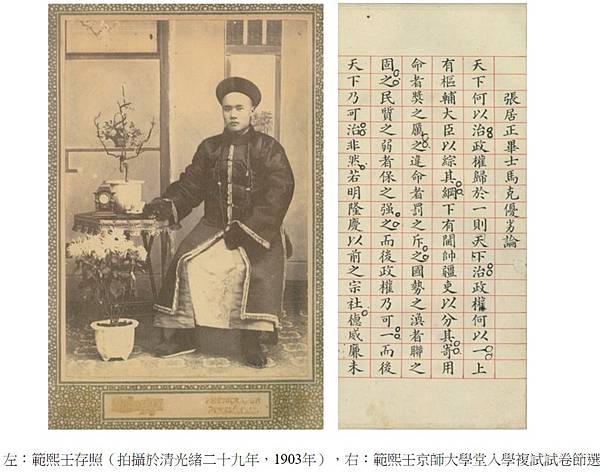 張居正畢士馬克優劣論
天下何以治政權歸於一則天下治政權何以一上
有樞輔大臣以綜其綱下有閫帥疆吏以分其寄用
命者獎之厲之違命者罰之斥之國勢之渙者聯之
固之民質之弱者保之强之而後政權乃可一而後
天下乃可治非然若明隆慶以前之宗社德威廉未
左：範熙壬存照（拍攝於清光緒二十九年，1903年），右：範熙壬京師大學堂入學複試試卷節選